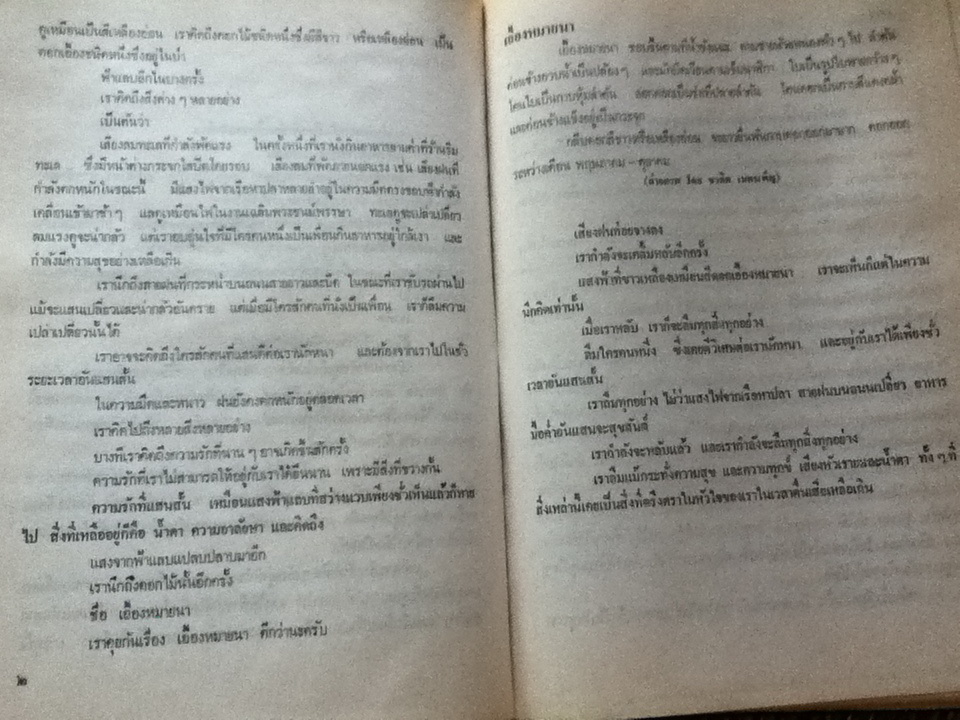 ดูเหมือนเป็นสีเหลืองอ่อน เราคิดถึงดอกไม้ชนิดหนึ่งซึ่งมีสีขาว หรือเหลืองอ่อน เป็น
ดอกเอื้องชนิดหนึ่งซึ่งอยู่ในป่า
ฟ้าแลบอีกในบางครั้ง
เราคิดถึงสิ่งต่าง ๆ หลายอย่าง
เป็นต้นว่า
เสียงลมทะเลที่กำลังพัดแรง ในครั้งหนึ่งที่เรานั่งกินอาหารยามค่ำที่ร้านริม
ทะเล ซึ่งมีหน้าต่างกระจกใสปิดโดยรอบ เสียงลมที่พัดภายนอกแรง เช่น เสียงฝนที่
กำลังตกหนักในขณะนี้ มีแสงไฟจากเรือหาปลาหลายลำอยู่ในความมืด กำลัง
เคลื่อนเข้ามาช้า ๆ แลดูเหมือนไฟในงานเฉลิมพระชนม์พรรษา ทะเลดูจะเปล่าเปลี่ยว
ลมแรงดูจะน่ากลัว แต่เราอบอุ่นใจที่มีใครคนหนึ่งเป็นเพื่อนกินอาหารอยู่ใกล้เรา และ
กำลังมีความสุขอย่างเหลือเกิน
เรานึกถึงสายฝนที่กระหน่ำบนถนนสายยาวและมืด ในขณะที่เราขับรถผ่านไป
แม้จะแสนเปลี่ยวและน่ากลัวอันตราย แต่เมื่อมีใครสักคนที่นั่งเป็นเพื่อน เราก็ลืมความ
เปล่าเปลี่ยวนั้นได้
เราอาจจะคิดถึงใครสักคนที่แสนดีต่อเรานักหนา และต้องจากเราไปในชั่ว
ระยะเวลาอันแสนสั้น
ในความมืดและหนาว ฝนยังคงตกหนักอยู่ตลอดเวลา
เราคิดไปถึงหลายสิ่งหลายอย่าง
บางทีเราคิดถึงความรักที่นาน ๆ อาจเกิดขึ้นสักครั้ง
ความรักที่เราไม่สามารถให้อยู่กับเราได้อีกนาน เพราะมีสิ่งที่ขวางกั้น
ความรักที่แสนสั้น เหมือนแสงฟ้าแลบที่สว่างแวบเพียงชั่วเห็นแล้วก็หาย
ไป สิ่งที่เหลืออยู่ก็คือ น้ำตา ความอาลัยหา และคิดถึง
แสงจากฟ้าแลบแปลบปลาบมาอีก
เรานึกถึงดอกไม้นั้นอีกครั้ง
ชื่อ เอื้องหมายนา
เราคุยกันเรื่อง เอื้องหมายนา ดีกว่านะครับ
๒
เอื้องหมายนา
เอื้องหมายนา ชอบขึ้นตามที่น้ำขังแฉะ ตามชายน้ำหนองทั่ว ๆ ไป ลำต้น
ค่อนข้างอวบน้ำเป็นปล้อง ๆ และมักบิดเวียนตามเข็มนาฬิกา ใบเป็นรูป
โคนใบเป็นกาบหุ้มลำต้น ออกดอกเป็นช่อที่ปลายลำต้น
และค่อนข้างแข็ง
กลีบดอกสีขาวหรือเหลืองอ่อน ดอกออก
ระหว่างเดือน พฤษภาคม - ตุลาคม
เสียงฝนที่ค่อยจางลง
เรากำลังจะเคลิ้มหลับอีกครั้ง
แสงฟ้าที่ขาวเหลืองเหมือนสีดอกเอื้องหมายนา เราจะเห็นก็แต่ในความ
นึกคิดเท่านั้น
เมื่อเราหลับ เราก็จะลืมทุกสิ่งทุกอย่าง
ลืมใครคนหนึ่ง ซึ่งเคยดีวิเศษต่อเรานักหนา และอยู่กับเราได้เพียงชั่ว
เวลาอันแสนสั้น
เราลืมทุกอย่าง ไม่ว่าแสงไฟจากเรือหาปลา สายฝนบนถนนเปลี่ยว อาหาร
มื้อค่ำอันแสนจะสุขสันต์
เรากำลังจะหลับแล้ว และเรากำลังจะลืมทุกสิ่งทุกอย่าง
เราลืมแม้กระทั่งความสุข และความทุกข์ เสียงหัวเราะและน้ำตา ทั้ง ๆ ที่
สิ่งเหล่านี้เคยเป็นสิ่งที่ตรึงตราในหัวใจของเราในเวลาตื่นเสียเหลือเกิน